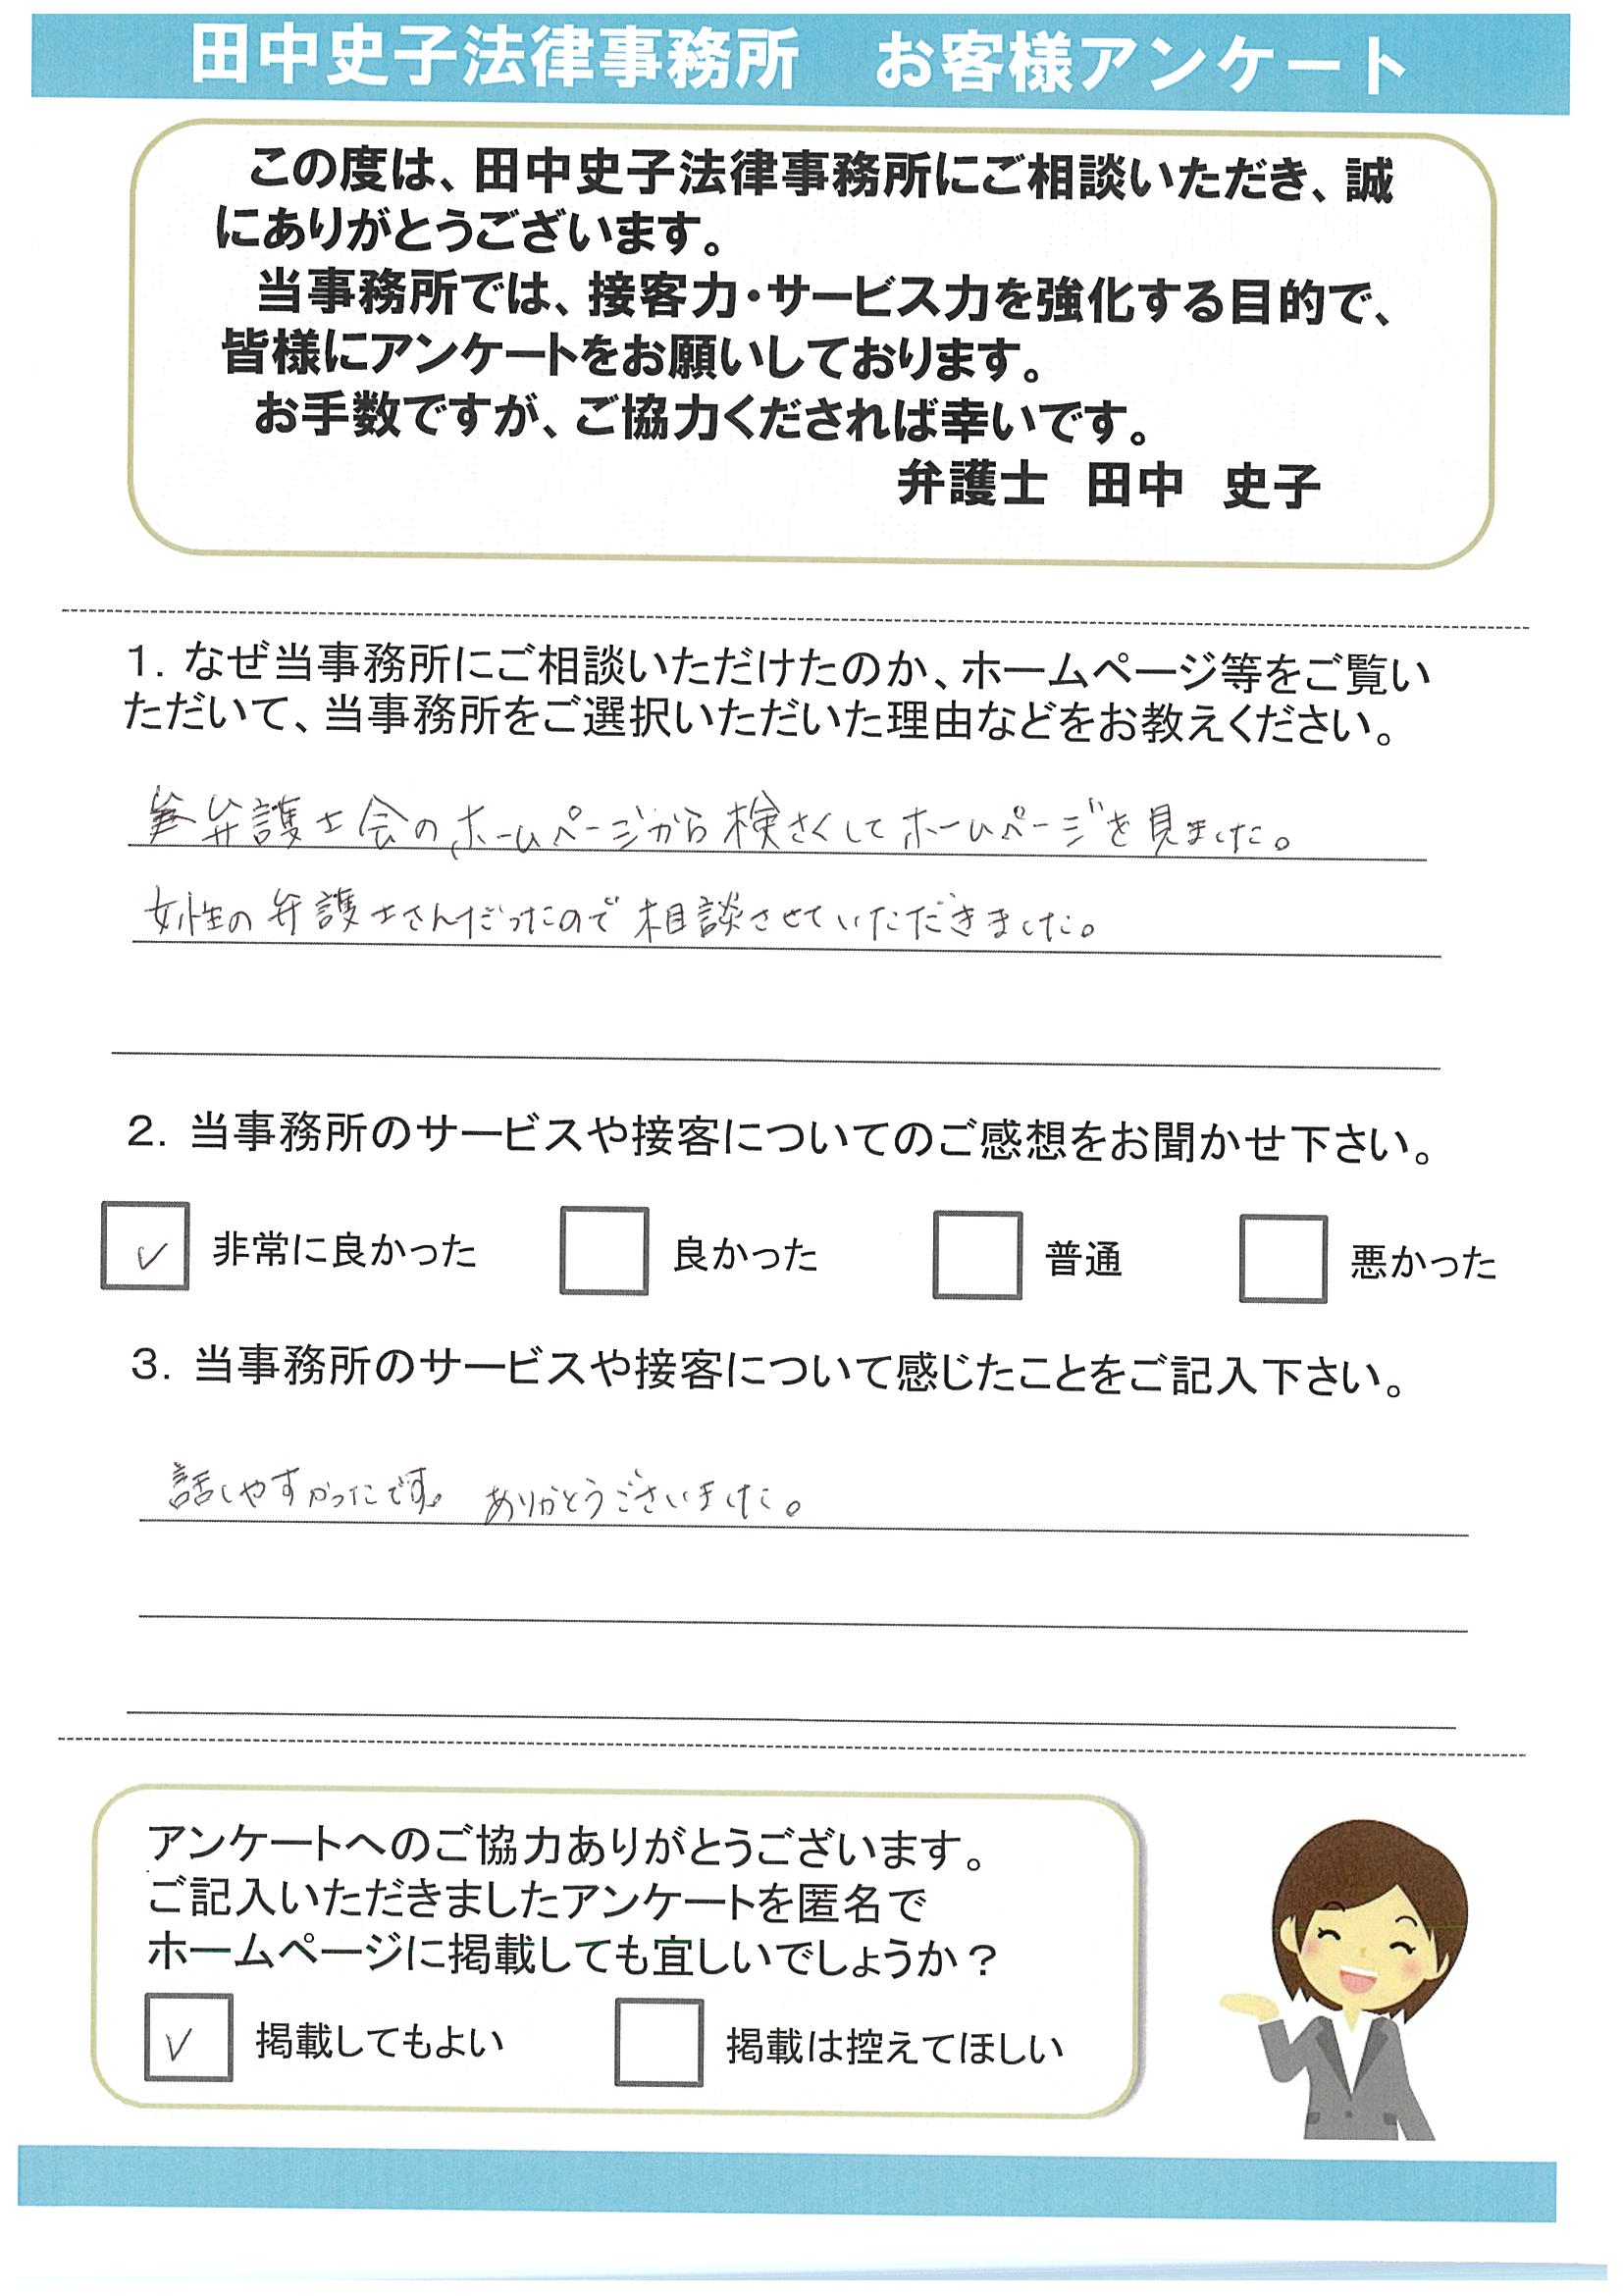 田中史子法律事務所　お客様アンケート
この度は、田中史子法律事務所にご相談いただき、誠
にありがとうございます。
当事務所では、接客力・サービス力を強化する目的で、
皆様にアンケートをお願いしております。
お手数ですが、ご協力くだされば幸いです。
弁護士　田中　史子
１．なぜ当事務所にご相談いただけたのか、ホームページ等をご覧い
ただいて、当事務所をご選択いただいた理由などをお教えください。
弁護士会のホームページから検さくしてホームページを見ました。
女性の弁護士さんだったので相談させていただきました。
２．当事務所のサービスや接客についてのご感想をお聞かせ下さい。
✓ 非常に良かった　良かった　普通　悪かった
３．当事務所のサービスや接客について感じたことをご記入下さい。
話しやすかったです。ありがとうございました。
アンケートへのご協力ありがとうございます。
ご記入いただきましたアンケートを匿名で
ホームページに掲載しても宜しいでしょうか？
✓ 掲載してもよい　掲載は控えてほしい